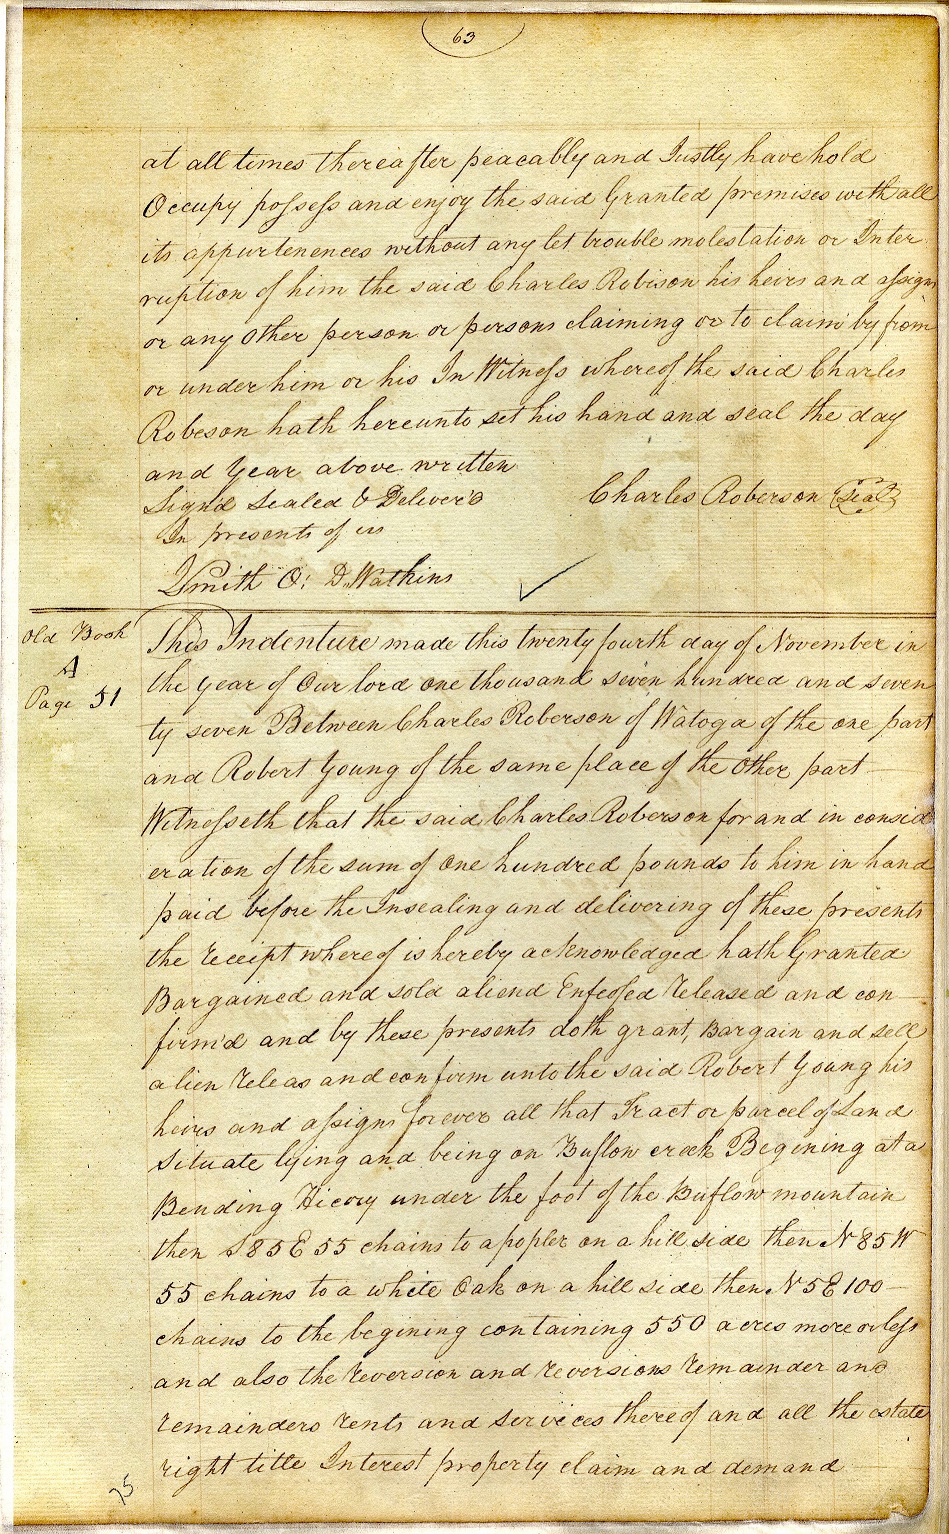 63
at all times thereafter peacably and Justly have hold
Occupy possess and enjoy the said Granted premises with all
its appurtenences without any let trouble molestation or Inter
ruption of him the said Charles Robison his heirs and assigns
or any other person or persons claiming or to claim by from
or under him or his In Witness whereof the said Charles
Robeson hath hereunto set his hand and seal the day
and Year above written
Signd Sealed & Deliver'd
Charles Roberson Seal
In presents of us
Smith O: D. Watkins
Old Book
A
Page 51
This Indenture made this twenty fourth day of November in
the year of Our lord one thousand seven hundred and seven
ty seven Between Charles Roberson of Watoga of the one part
and Robert Young of the same place of the Other part
Witnesseth that the said Charles Roberson for and in consid
eration of the sum of One hundred pounds to him in hand
paid before the Insealing and delivering of these presents
the receipt whereof is hereby acknowledged hath Granted
Bargained and sold aliend Enfeofed released and con
firm'd and by these presents doth grant, Bargain and sell
alien releas and confirm unto the said Robert Young his
heirs and assigns forever all that Tract or parcel of Land
situate lying and being on Buflow creek Begining at a
Bending Hicory under the foot of the Buflow mountain
then S 85 E 55 chains to a popler on a hill side then N 85 W
55 chains to a white Oak on a hill side then N 5 E 100
chains to the begining containing 550 acres more or less
and also the reversion and reversions remainder and
remainders rents and services thereof and all the estate
right title Interest property claim and demand
75